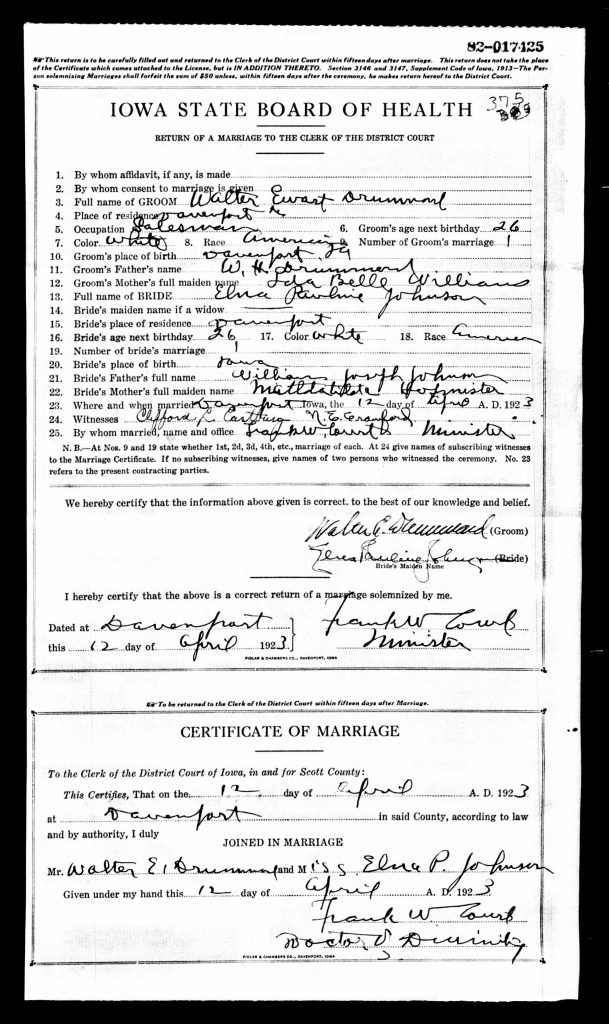 82-017425
This return is to be carefully filled out and returned to the Clerk of the District Court within fifteen days after marriage. This return does not take the place
of the Certificate which comes attached to the License, but is IN ADDITION THERETO. Section 3146 and 3147, Supplement Code of Iowa, 1913—The Per-
son solemnizing Marriages shall forfeit the sum of $50 unless, within fifteen days after the ceremony, he makes return hereof to the District Court.
IOWA STATE BOARD OF HEALTH 375
RETURN OF A MARRIAGE TO THE CLERK OF THE DISTRICT COURT
1. By whom affidavit, if any, is made
2. By whom consent to marriage is given
3. Full name of GROOM Walter Ewart Drummond
4. Place of residence Davenport Ia
5. Occupation Salesman 6. Groom's age next birthday 26
7. Color White 8. Race American 9. Number of Groom's marriage 1
10. Groom's place of birth Davenport Ia
11. Groom's Father's name W. H. Drummond
12. Groom's Mother's full maiden name Ida Belle Williams
13. Full name of BRIDE Elna Pauline Johnson
14. Bride's maiden name if a widow
15. Bride's place of residence Davenport
16. Bride's age next birthday 26 17. Color White 18. Race American
19. Number of bride's marriage 1
20. Bride's place of birth Iowa
21. Bride's Father's full name William Joseph Johnson
22. Bride's Mother's full maiden name Hofmister
23. Where and when married Davenport Iowa, the 12 day of April A. D. 1923
24. Witnesses Clifford L. N. E. Crawford
25. By whom married, name and office Frank W Court Minister
N. B.—At Nos. 9 and 19 state whether 1st, 2d, 3d, 4th, etc., marriage of each. At 24 give names of subscribing witnesses
to the Marriage Certificate. If no subscribing witnesses, give names of two persons who witnessed the ceremony. No. 23
refers to the present contracting parties.
We hereby certify that the information above given is correct. to the best of our knowledge and belief.
Walter E. Drummond (Groom)
Elna Pauline Johnson (Bride)
Bride's Maiden Name
I hereby certify that the above is a correct return of a marriage solemnized by me.
Dated at Davenport Frank W Court
this 12 day of April 1923 Minister
FIDLAR & CHAMBERS CO., DAVENPORT, IOWA
To be returned to the Clerk of the District Court within fifteen days after Marriage.
CERTIFICATE OF MARRIAGE
To the Clerk of the District Court of Iowa, in and for Scott County:
This Certifies, That on the 12 day of April A. D. 1923
at Davenport in said County, according to law
and by authority, I duly
JOINED IN MARRIAGE
Mr. Walter E. Drummond and Miss Elna P. Johnson
Given under my hand this 12 day of April A. D. 1923
Frank W Court
Doctor of Divinity
FIDLAR & CHAMBERS CO., DAVENPORT, IOWA